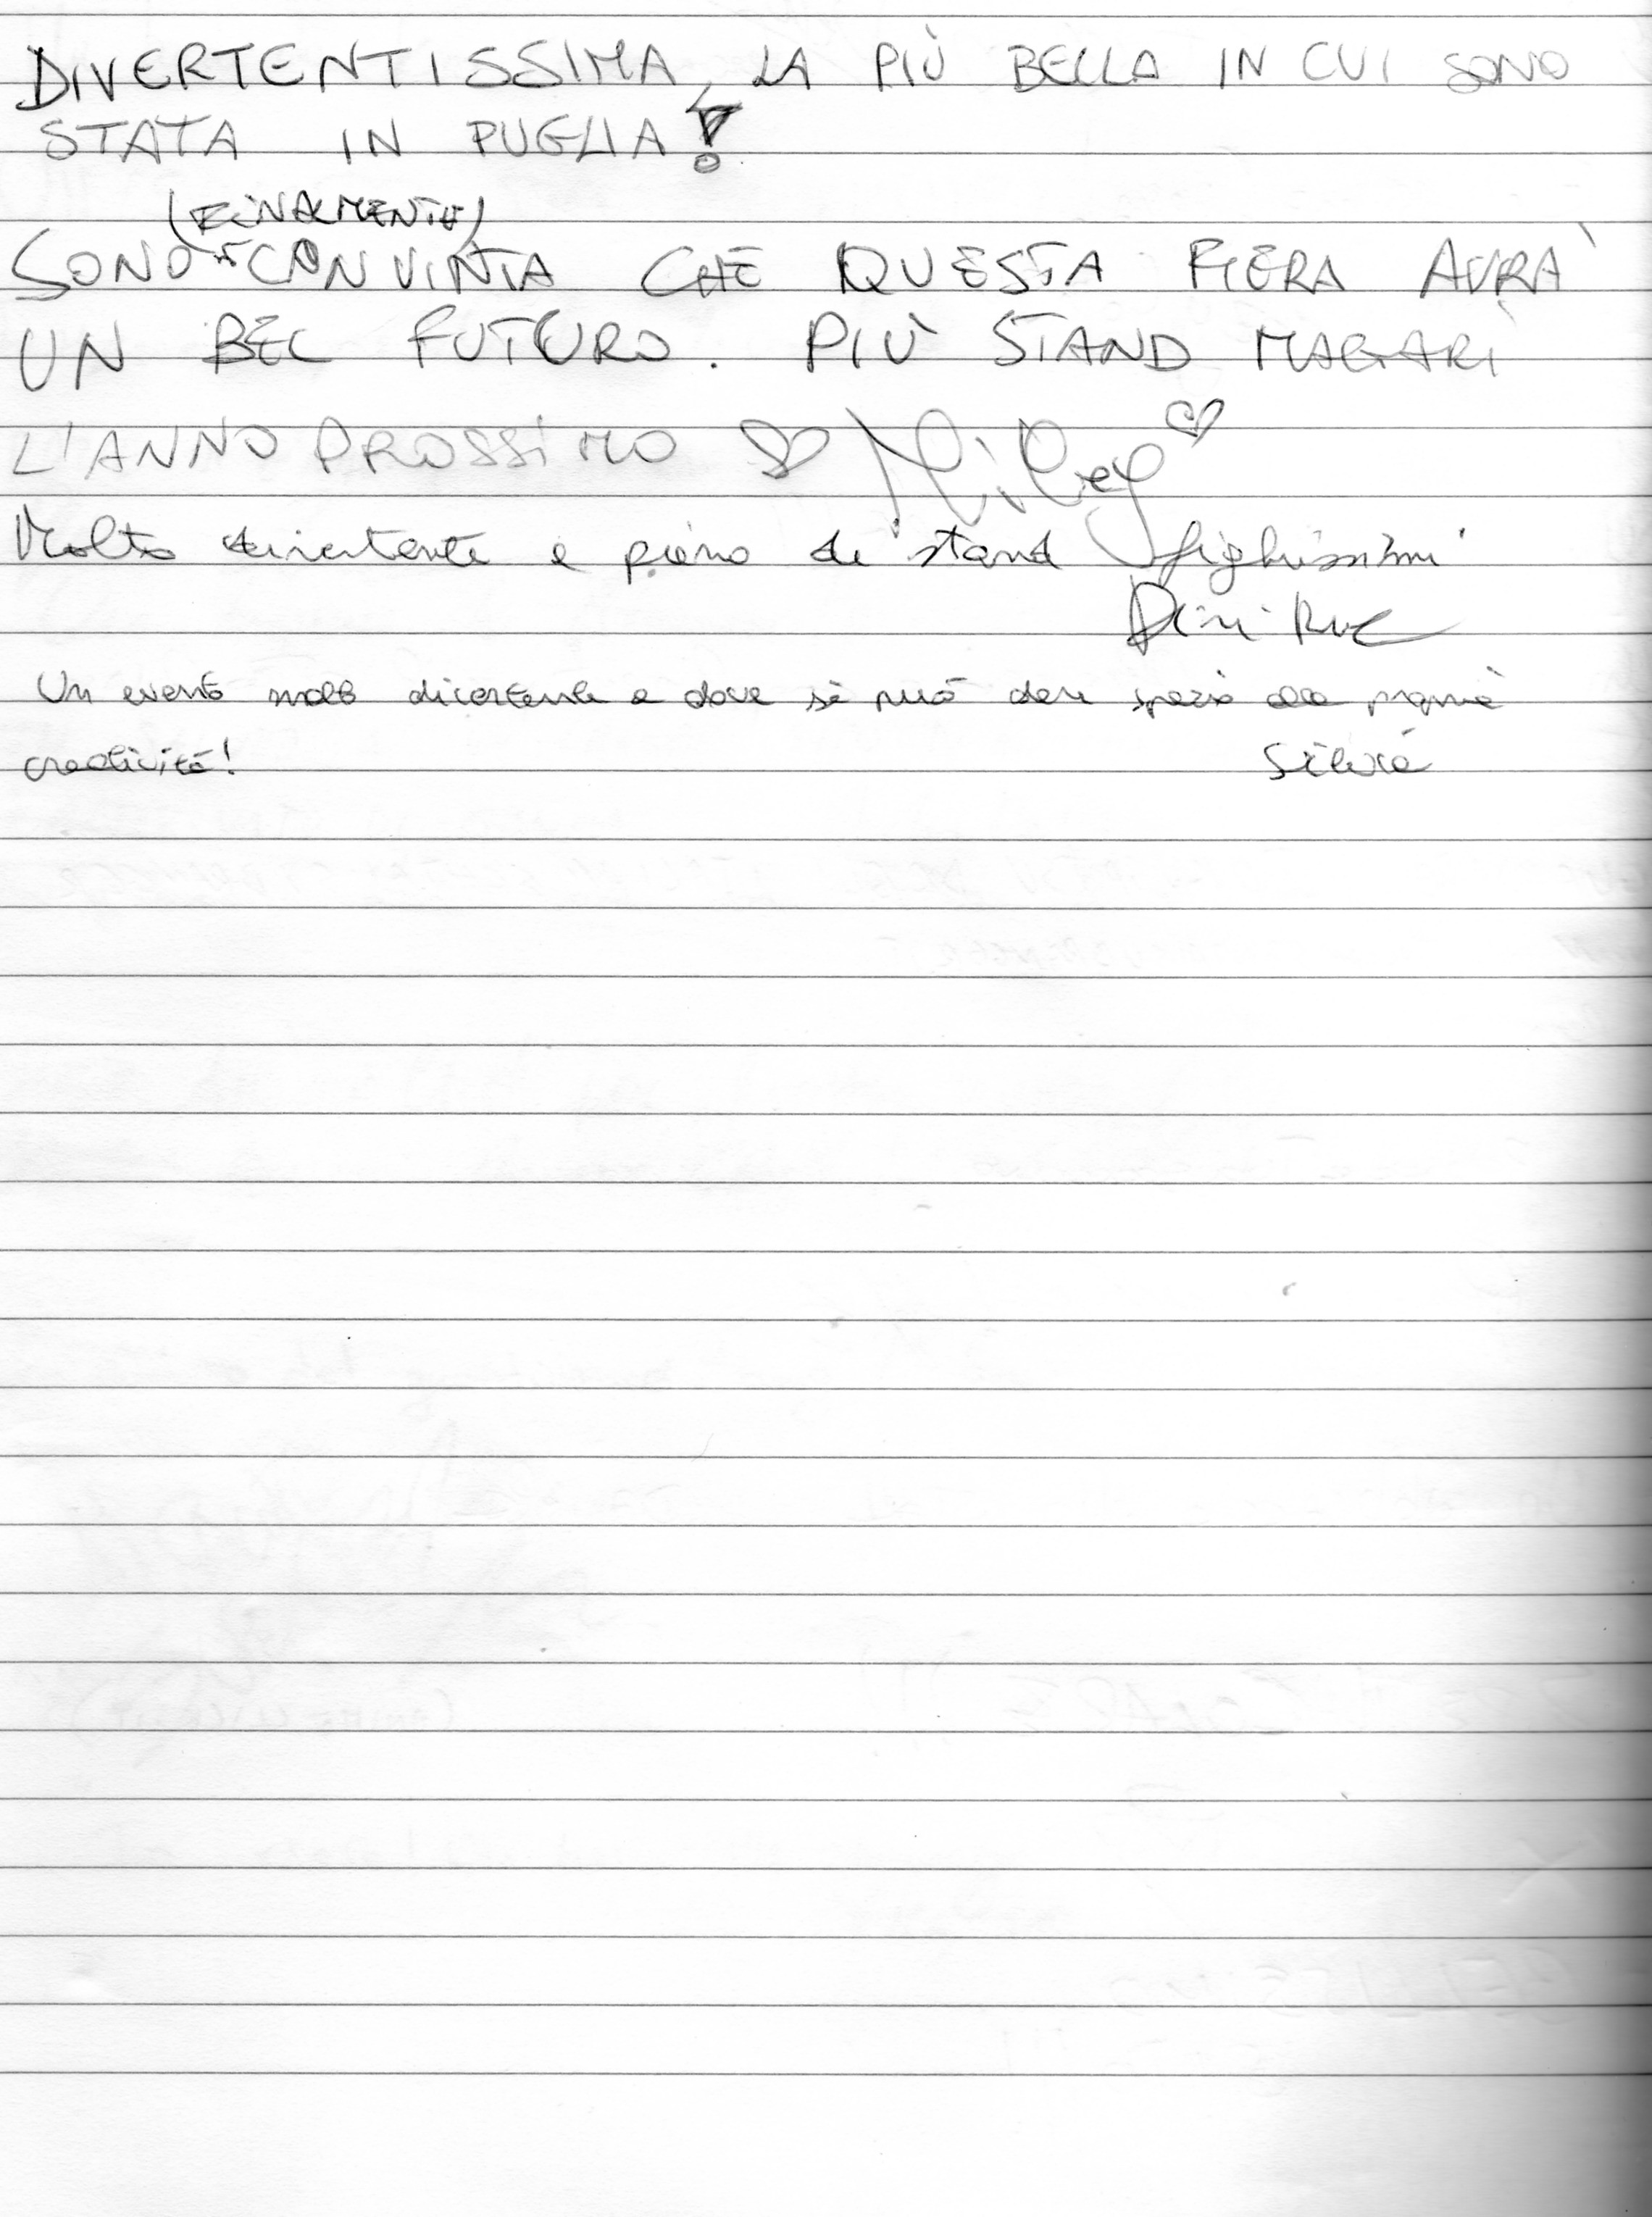 DIVERTENTISSIMA, LA PIÙ BELLA IN CUI SONO
STATA IN PUGLIA!
(FINALMENTE)
SONO CONVINTA CHE QUESTA FIERA AVRA'
UN BEL FUTURO. PIÙ STAND MAGARI
L'ANNO PROSSIMO ♡ Miley ♡
Molto divertente e pieno di stand fighissimi
Un evento molto divertente e dove si può dare spazio alla propria
creatività!
Silvia